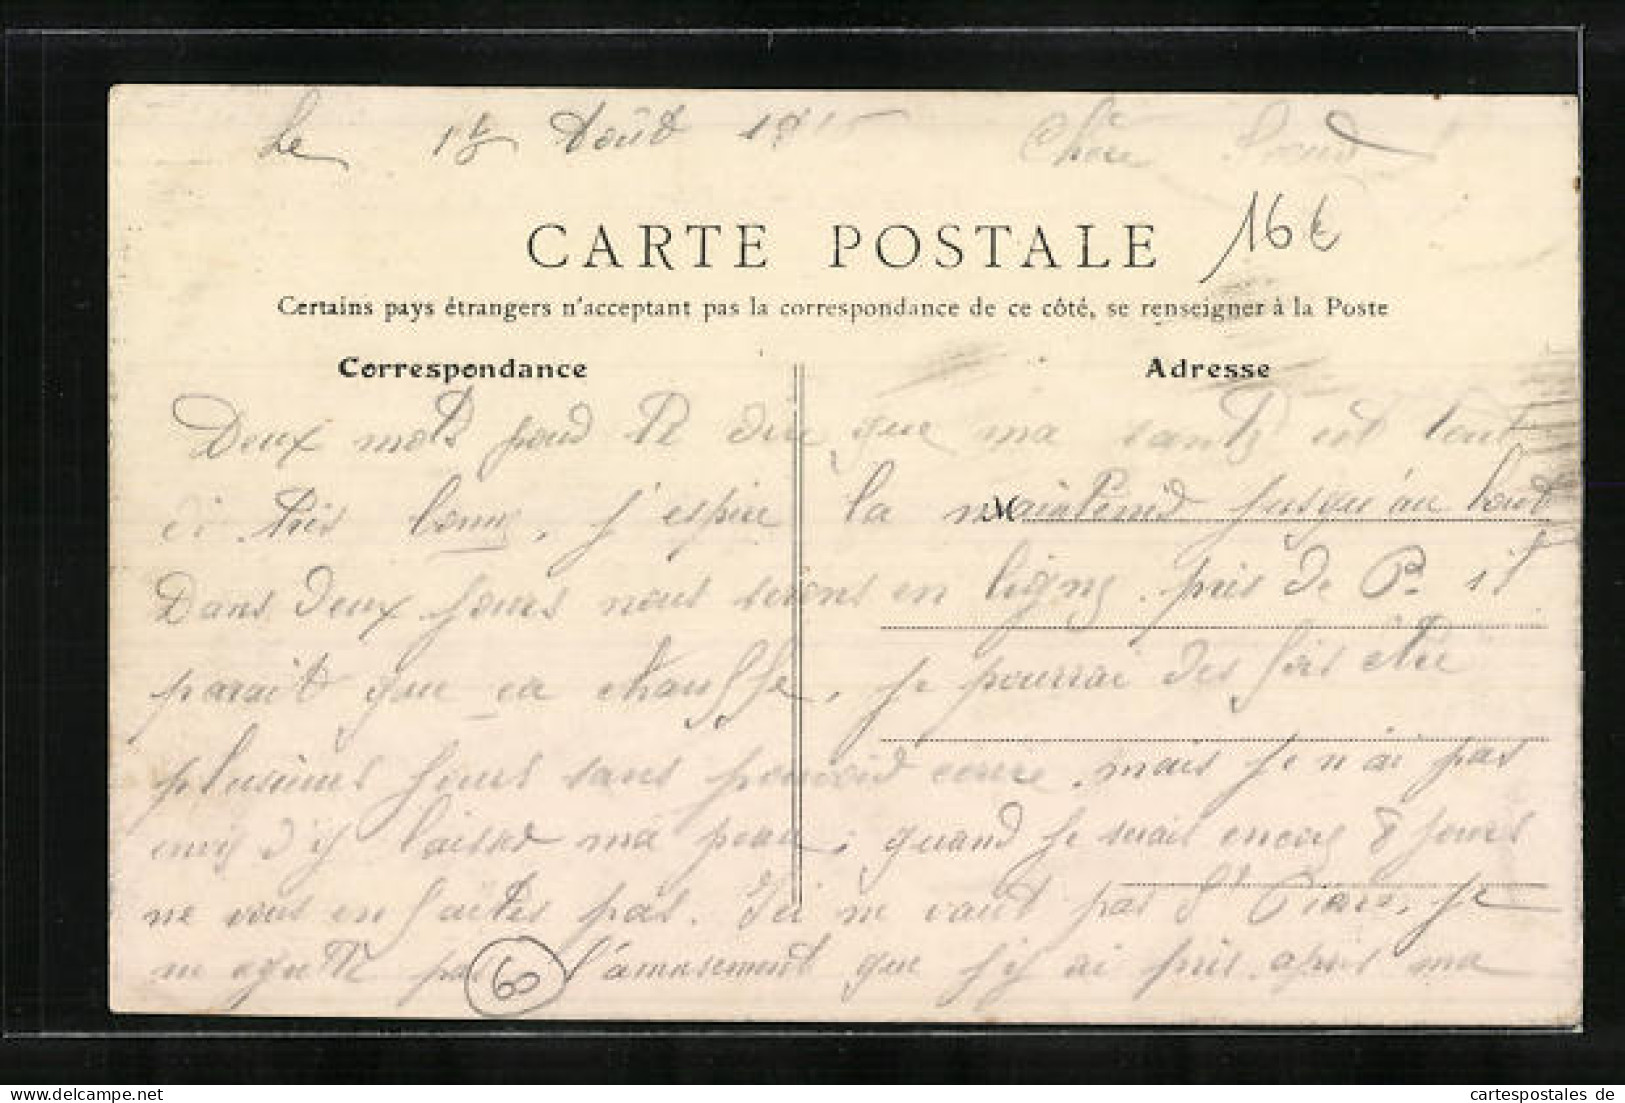 Le 15 Août 1915 Chère Soeur
16€
CARTE POSTALE
Certains pays étrangers n'acceptant pas la correspondance de ce côté, se renseigner à la Poste
Correspondance Adresse
Deux mots pour te dire que ma santé est tout
di très bonne, j'espère la maintenir jusqu'au bout
Dans deux jours nous serons en ligne. près de P. il
parait que ca chauffe, je pourrai des fois être
plusieurs jours sans pouvoir écrire. mais je n'ai pas
envie d'y laisser ma peau, quand je serais encore 8 jours
ne vous en faites pas. Ici ne vaut pas St Pierre, je
ne regrette pas l'amusement que j'y ai pris après ma
60
cartespostales de